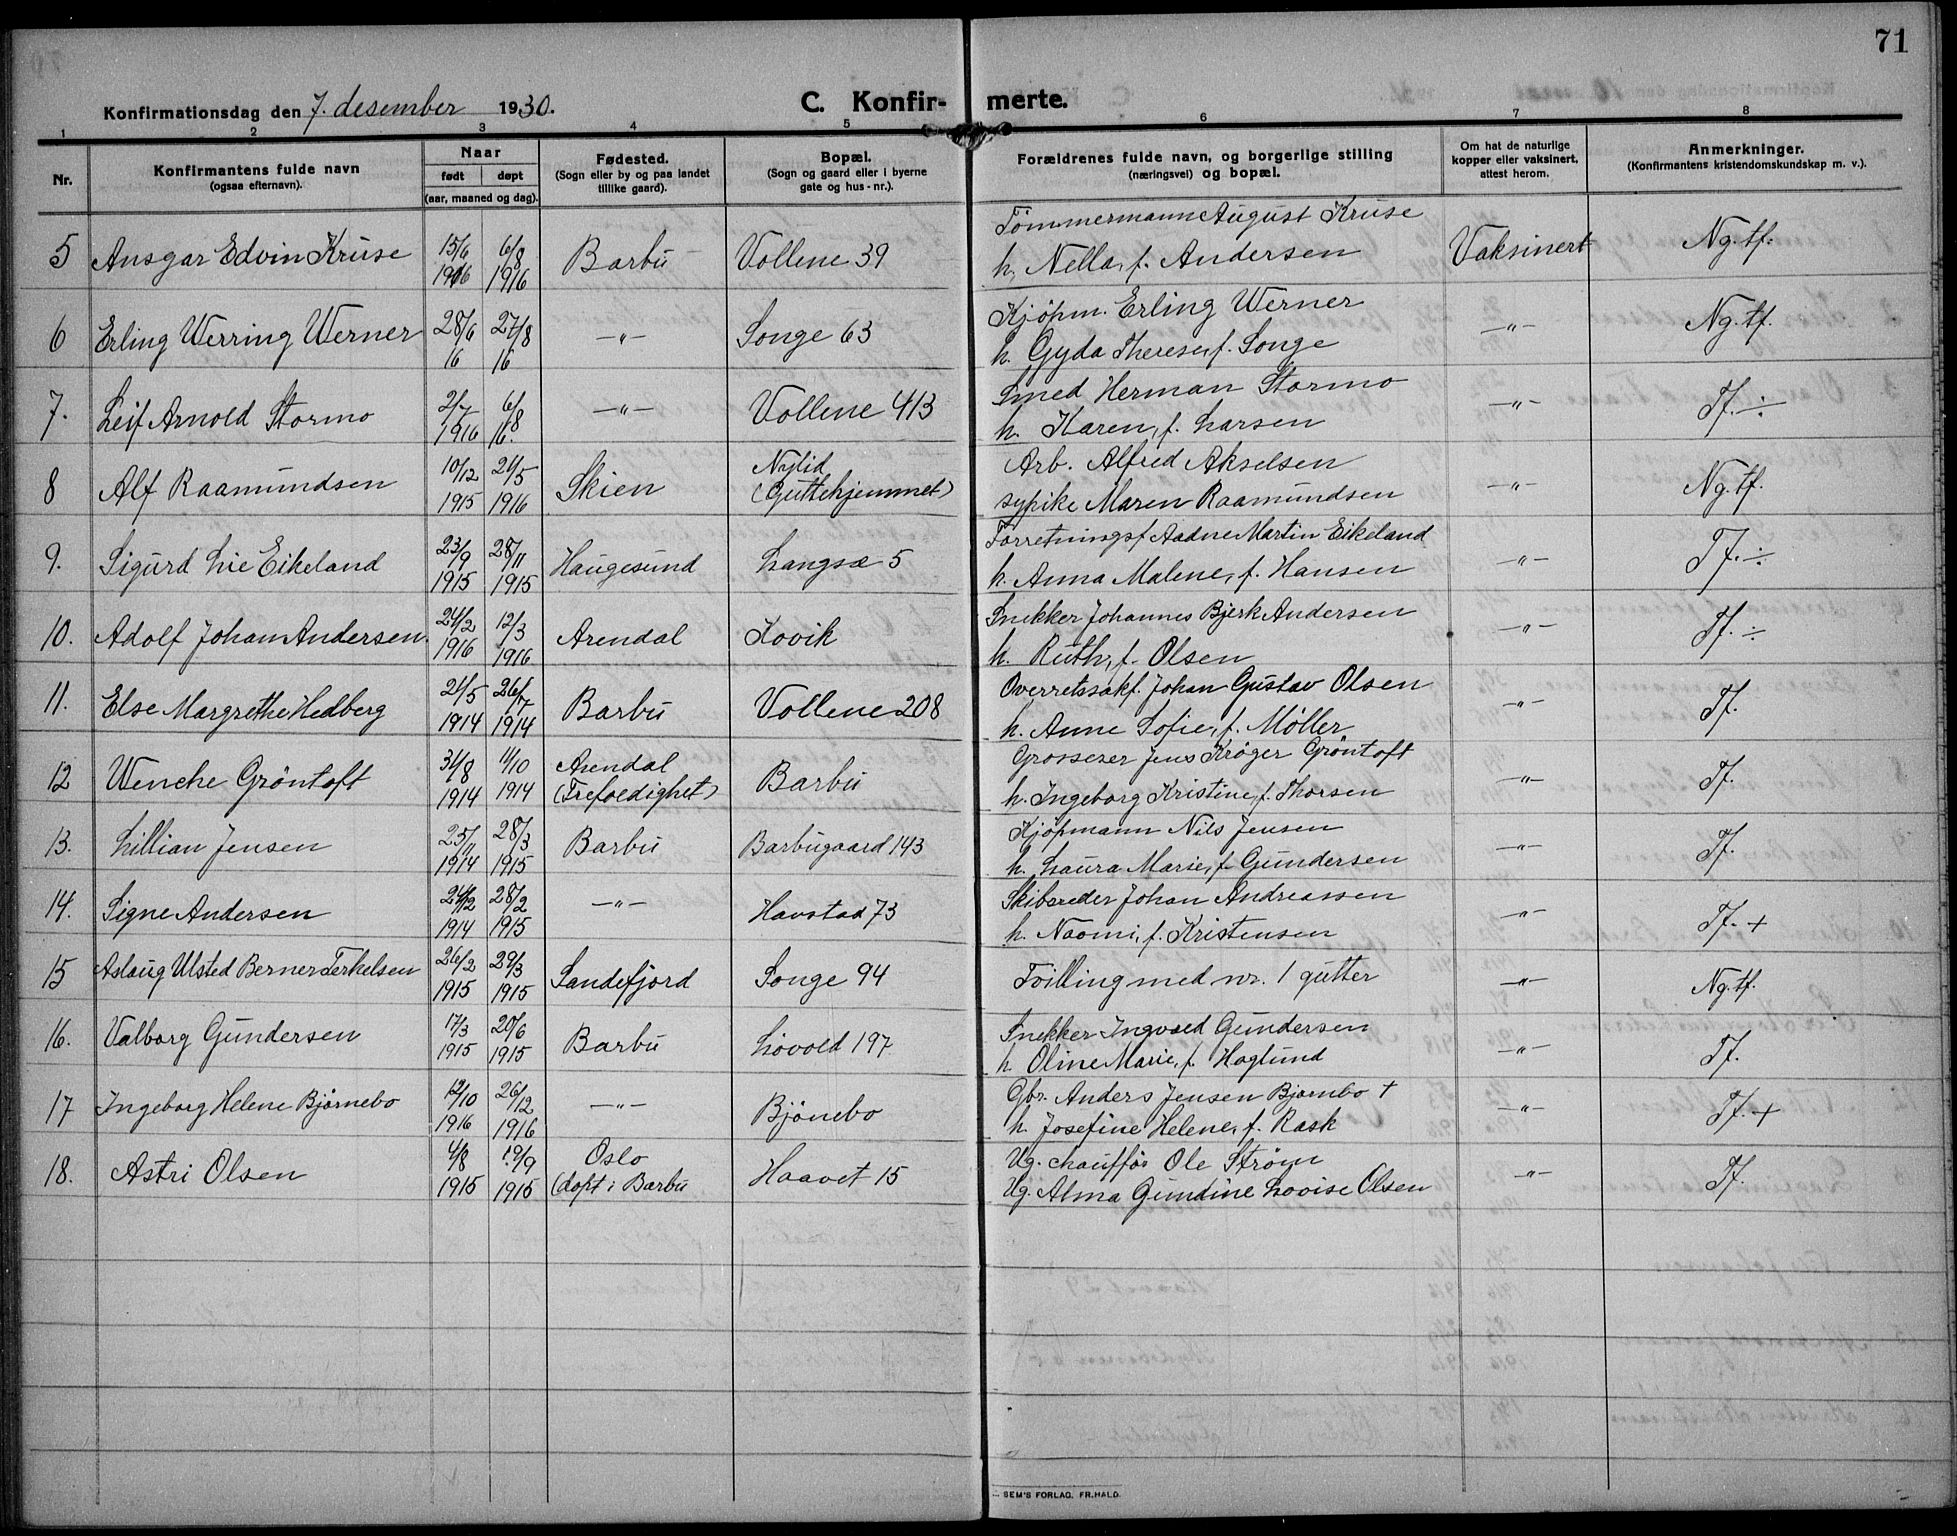 71
Konfirmationsdag den 7. desember 1930. C. Konfir- merte.
1 2 3 4 5 6 7 8
Nr. Konfirmantens fulde navn (ogsaa efternavn). Naar født døpt (aar, maaned og dag). Fødested. (Sogn eller by og paa landet tillike gaard). Bopæl. (Sogn og gaard eller i byerne gate og hus-nr.). Forældrenes fulde navn, og borgerlige stilling (næringsvei) og bopæl. Om hat de naturlige kopper eller vaksinert, attest herom. Anmerkninger. (Konfirmantens kristendomskundskap m. v.).
5 Ansgar Edvin Kruse 15/6 1916 6/8 1916 Barbu Vollene 39 Tømmermann August Kruse Vaksinert Ng. tf.
h. Nella, f. Andersen
6 Erling Werring Werner 28/6 16 27/8 16 —"— Songe 63 Kjöpm. Erling Werner —"— Ng. tf.
h. Gyda Therese, f. Songe
7. Leif Arnold Stormo 2/7 1916 6/8 16. —"— Vollene 413 Smed Herman Stormo —"— Tf. ÷
h. Karen, f. Larsen
8 Alf Raamundsen 10/12 1915 21/5 1916 Skien Nylid (Guttehjemmet) Arb. Alfred Akselsen —"— Ng. tf.
sypike Maren Raamundsen
9. Sigurd Lie Eikeland 23/9 1915 28/11 1915 Haugesund Langsæ 5 Forretningsf. Aadne Martin Eikeland —"— Tf. ÷
h. Anna Malene, f. Hansen
10. Adolf Johan Andersen 24/2 1916 12/3 1916 Arendal Kovik Snekker Johannes Bjerk Andersen —"— Tf. ÷
h. Ruth, f. Olsen
11. Else Margrethe Hedberg 21/5 1914 26/7 1914 Barbu Vollene 208 Overretssakf. Johan Gustav Olsen —"— Tf.
h. Anne Sofie, f. Møller
12 Wenche Gröntoft 31/8 1914 11/10 1914 Arendal (Trefoldighet) Barbu Grosserer Jens Krøger Gröntoft —"— Tf.
h. Ingeborg Kristine, f. Thorsen
13. Lillian Jensen 25/11 1914 28/3 1915 Barbu Barbugaard 143 Kjøpmann Nils Jensen —"— Tf.
h. Laura Marie, f. Gundersen
14. Signe Andersen 24/12 1914 28/2 1915 —"— Havstad 73 Skibsreder Johan Andreassen —"— Tf. +
h. Naomi, f. Kristensen
15 Aslaug Ulsted Berner Terkelsen 26/2 1915 29/3 1915 Sandefjord Songe 94 Tvilling med nr. 1 gutter —"— Ng. tf.
16. Valborg Gundersen 17/3 1915 20/6 1915 Barbu Løvold 197 Snekker Ingvald Gundersen —"— Tf.
h. Oline Marie, f. Høglund
17 Ingeborg Helene Bjørnebo 12/10 1916 26/12 1916 —"— Bjönebo Gbr. Anders Jensen Bjørnbo † —"— Tf. +
h. Josefine Helene, f. Rask
18. Astri Olsen 4/8 1915 19/9 1915 Oslo (døpt i Barbu Haavet 15 Ug. chauffør Ole Strøm —"— Tf.
Ug. Alma Gundine Lovise Olsen
SEM'S FORLAG. FR.HALD.